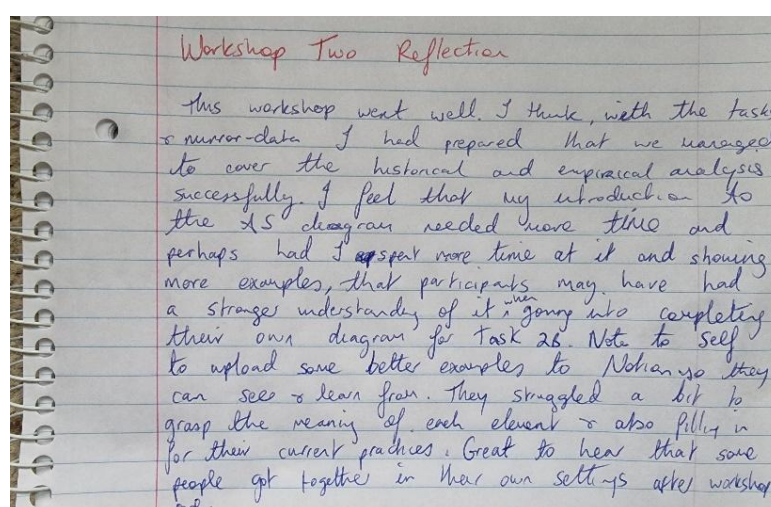 Workshop Two Reflection
This workshop went well. I think, with the task
& mirror-data I had prepared that we managed
to cover the historical and empirical analysis
successfully. I feel that my introduction to
the AS diagram needed more time and
perhaps had I spent more time at it and showing
more examples, that participants may have had
a stronger understanding of it when going into completing
their own diagram for Task 2B. Note to self
to upload some better examples to Notion so they
can see & learn from. They struggled a bit to
grasp the meaning of each element & also filling in
for their current practices. Great to hear that some
people got together in their own settings after workshop